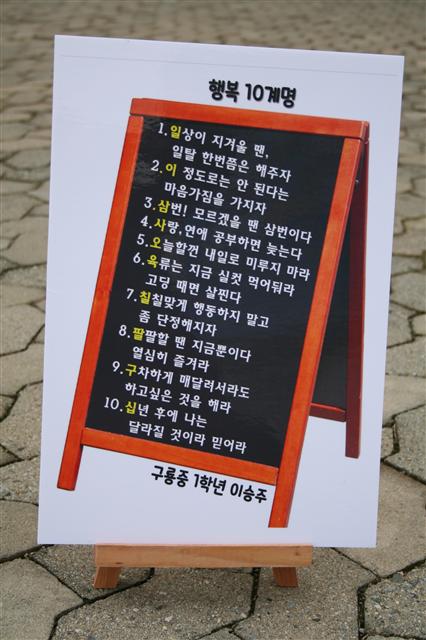 행복 10계명
1. 일상이 지겨울 땐,
일탈 한번쯤은 해주자
2. 이 정도로는 안 된다는
마음가짐을 가지자
3. 삼번! 모르겠을 땐 삼번이다
4. 사랑, 연애 공부하면 늦는다
5. 오늘할껀 내일로 미루지 마라
6. 육류는 지금 실컷 먹어둬라
고딩 때면 살찐다
7. 칠칠맞게 행동하지 말고
좀 단정해지자
8. 팔팔할 땐 지금뿐이다
열심히 즐겨라
9. 구차하게 매달려서라도
하고싶은 것을 해라
10. 십년 후에 나는
달라질 것이라 믿어라
구룡중 1학년 이승주